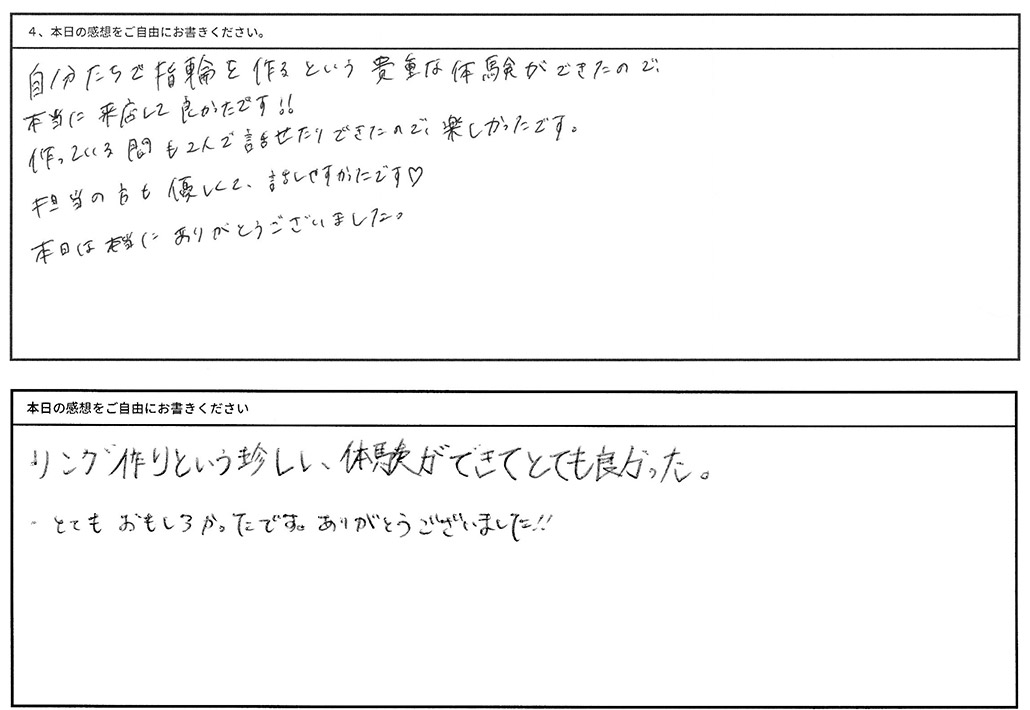 4、本日の感想をご自由にお書きください。
自分たちで指輪を作るという貴重な体験ができたので、
本当に来店して良かたです!!
作っている間も2人で話せたりできたので、楽しかったです。
担当の方も優しくて、話しやすかたです♡
本日は本当にありがとうございました。
本日の感想をご自由にお書きください
リング作りという珍しい、体験ができてとても良かった。
・とてもおもしろかったです。ありがとうございました!!